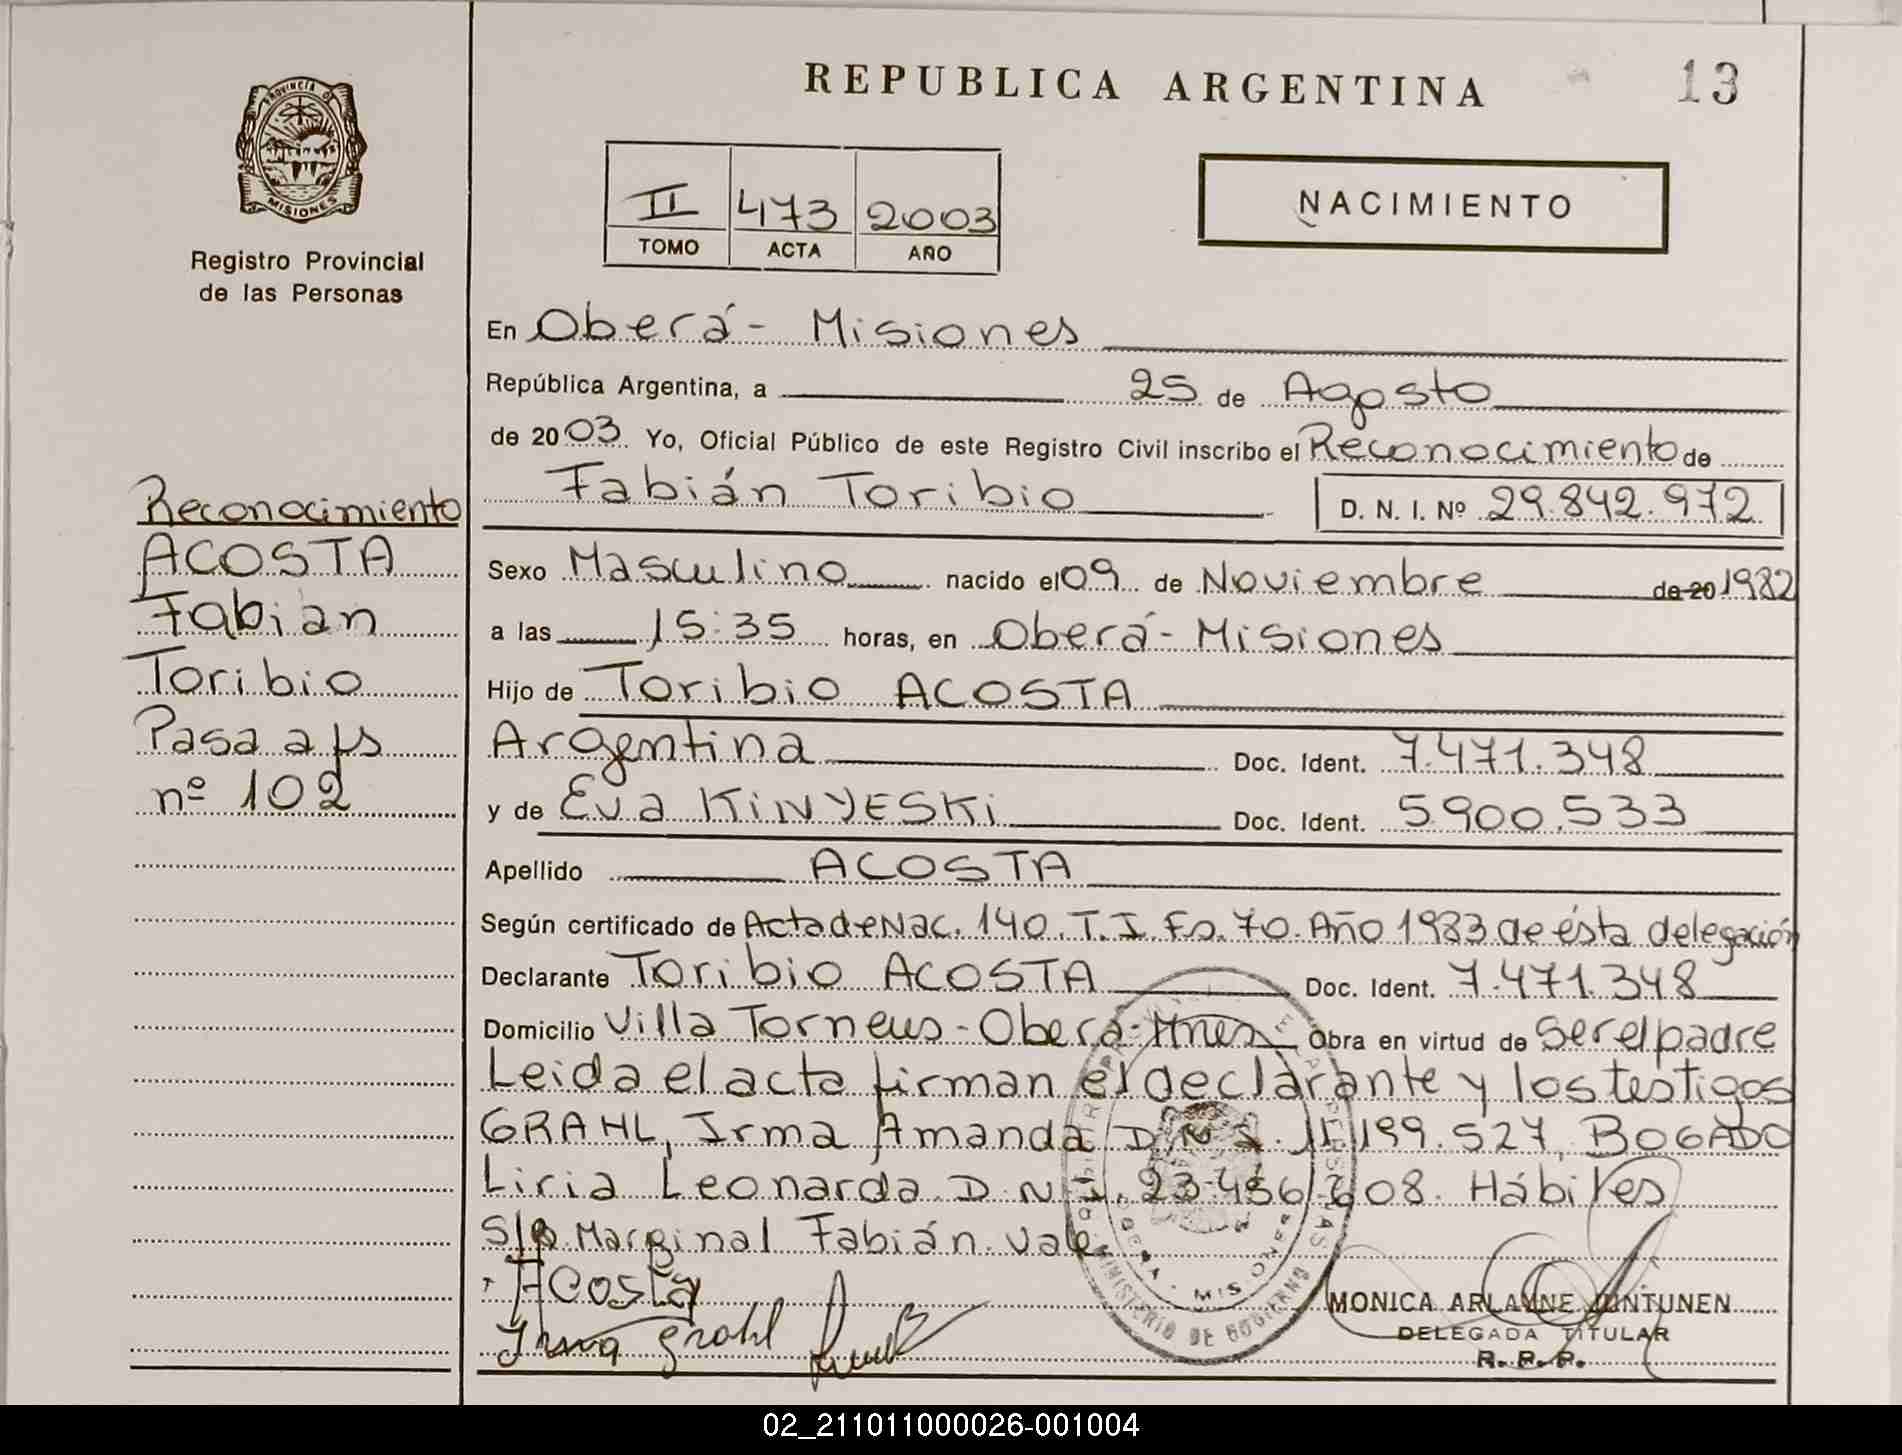 REPUBLICA ARGENTINA
13
PROVINCIA DE MISIONES
Registro Provincial
de las Personas
II 473 2003
TOMO ACTA AÑO
NACIMIENTO
En Oberá - Misiones
República Argentina, a 25 de Agosto
de 2003 Yo, Oficial Público de este Registro Civil inscribo el Reconocimiento de
Fabián Toribio D. N. I. Nº 29.842.972
Sexo Masculino nacido el 09 de Noviembre de 20 1982
a las 15:35 horas, en Oberá - Misiones
Hijo de Toribio ACOSTA
Argentina Doc. Ident. 7.471.348
y de Eva KiNYESKi Doc. Ident. 5.900.533
Apellido ACOSTA
Según certificado de Acta de Nac. 140. T. I. Fo. 70. Año 1983 de ésta delegación
Declarante Toribio ACOSTA Doc. Ident. 7.471.348
Domicilio Villa Torneus - Oberá - Mnes Obra en virtud de Ser el padre
Leida el acta firman el declarante y los testigos
GRAHL, Irma Amanda D.N.I. 11.199.527, BOGADO
Liria Leonarda D.N.I. 23.456.608. Hábiles
S/R Marginal Fabián. Vale.
Acosta
Irma Grahl
MONICA ARLAYNE JUNTUNEN
DELEGADA TITULAR
R. P. P.
MINISTERIO DE GOBIERNO
OBERA - MISIONES
Reconocimiento
ACOSTA
Fabián
Toribio
Pasa a fs
nº 102
02_211011000026-001004